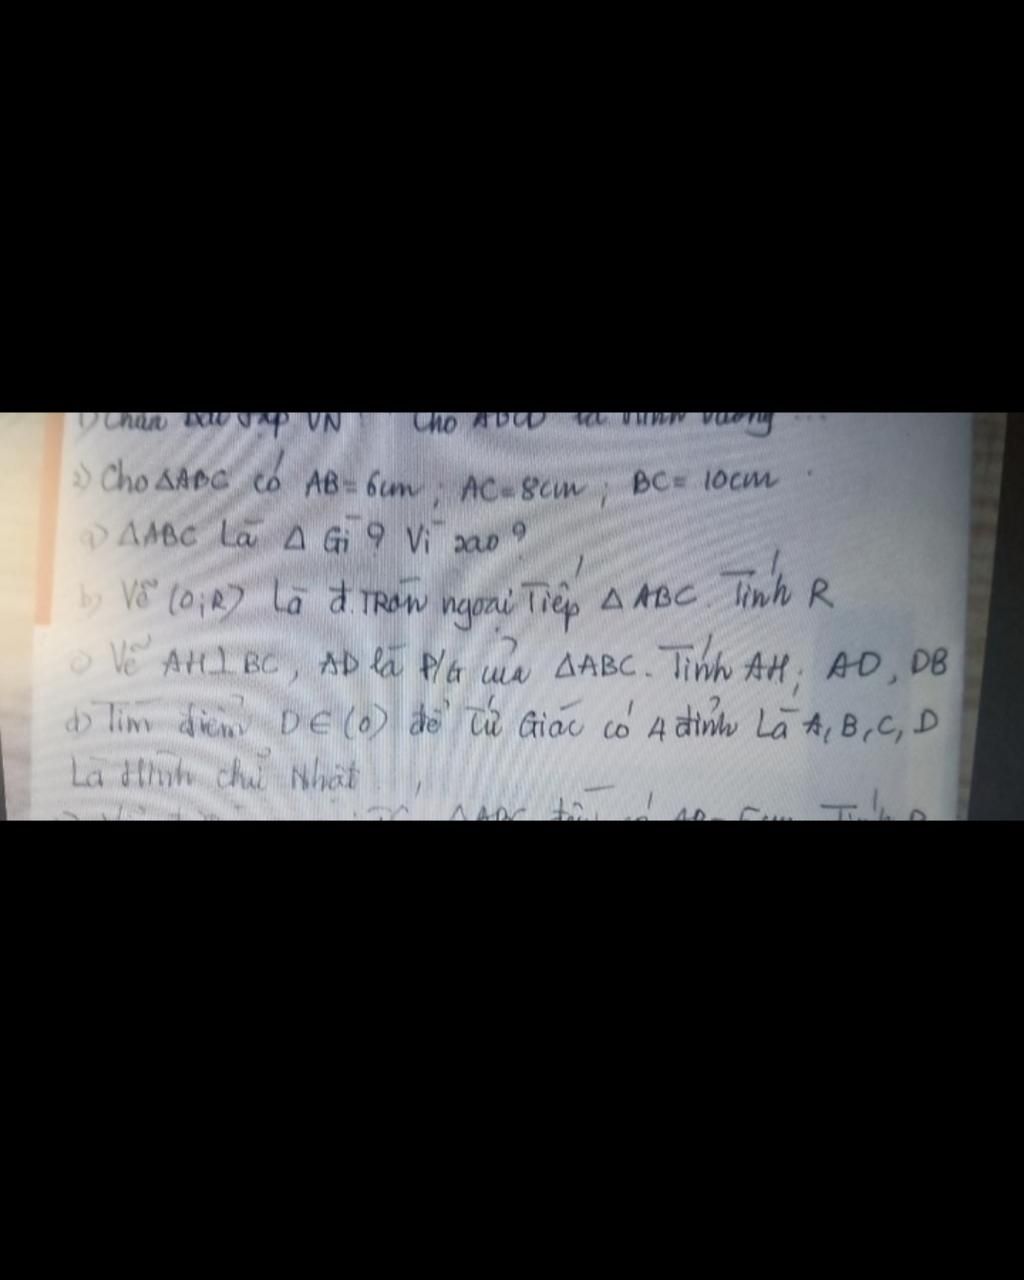 Cho ABCD là hình vuông ...
2) Cho ΔABC có AB = 6cm ; AC = 8cm ; BC = 10cm
a) ΔABC Là Δ Gì ? Vì sao ?
b) Vẽ (O;R) Là đ.Tròn ngoại Tiếp ΔABC. Tính R
c) Vẽ AH⊥BC, AD là P/G của ΔABC. Tính AH; AD, DB
d) Tìm điểm D∈(O) để Tứ Giác có 4 đỉnh Là A, B, C, D
Là Hình chữ Nhật